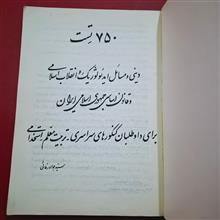 ۷۵۰ تست
دینی و مسائل ایدئولوژیک و انقلاب اسلامی
و قانون اساسی جمهوری اسلامی ایران
برای داوطلبان کنکورهای سراسری - تربیت معلم استخدامی